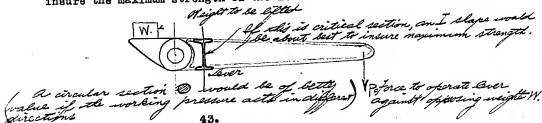 insure the maximum strength of the
Weight to be lifted
W.
If this is critical section, an I shape would
be about best to insure maximum strength.
Lever
(A circular section would be of better
value if the working pressure acts in different
directions)
P force to operate lever
against opposing weight W.
43.